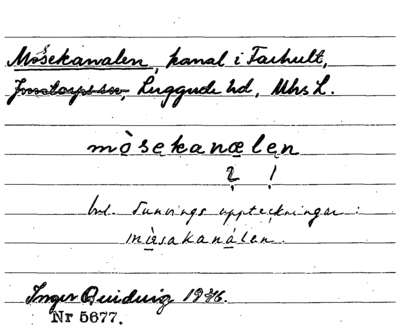 Mosekanalen, kanal i Farhult,
Jonstorps sn, Luggude hd, Mhs L.
mòsekanælen
2 !
enl. Tunvings uppteckningar:
mòsakanálen.
Inger Quiding 1936.
Nr 5677.